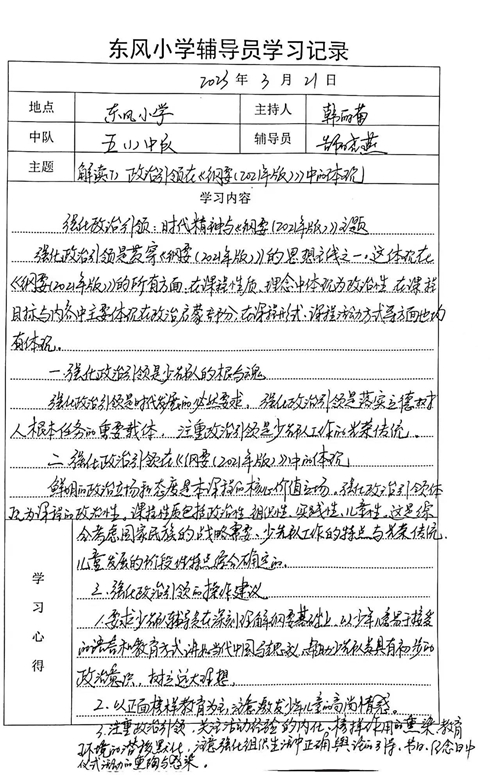 东风小学辅导员学习记录
2023 年 3 月 21 日
地点 东风小学 主持人 韩丽苗
中队 五(1)中队 辅导员
主题 解读(7) 政治引领在《纲要(2021年版)》中的体现
学习内容
强化政治引领:时代精神与《纲要(2021年版)》主题
强化政治引领是贯穿《纲要(2021年版)》的思想主线之一,这体现在
《纲要(2021年版)》的所有方面,在课程性质、理念中体现为政治性,在课程
目标与内容中主要体现在政治启蒙部分,在课程形式、课程活动方式等方面也均
有体现。
一.强化政治引领是少先队的根与魂
强化政治引领是时代发展的必然要求,强化政治引领是落实立德树
人根本任务的重要载体,注重政治引领是少先队工作的光荣传统。
二.强化政治引领在《纲要(2021年版)》中的体现
鲜明的政治立场和态度是本课程的核心价值立场,强化政治引领体
现为课程的政治性。课程性质包括政治性、组织性、实践性、儿童性。这是综
合考虑国家民族的战略需要、少先队工作的特点与光荣传统,
儿童发展的阶段性特点综合确定的。
学习心得
2.强化政治引领的操作建议
1.要求少先队辅导员在深刻理解纲要基础上,以少年儿童易于接受
的语言和教育方式,讲 当代中国马 ,帮助少先队员具有初步的
政治意识,树立远大理想。
2.以正面榜样教育为主,注意激发少年儿童的高尚情感。
3.注重政治引领,关注活动经验的内化,榜样作用的熏染,教育
环境的潜移默化,注意强化组织生活中正确舆论的引导,书日、纪念日中
仪式活动的熏陶与感染。